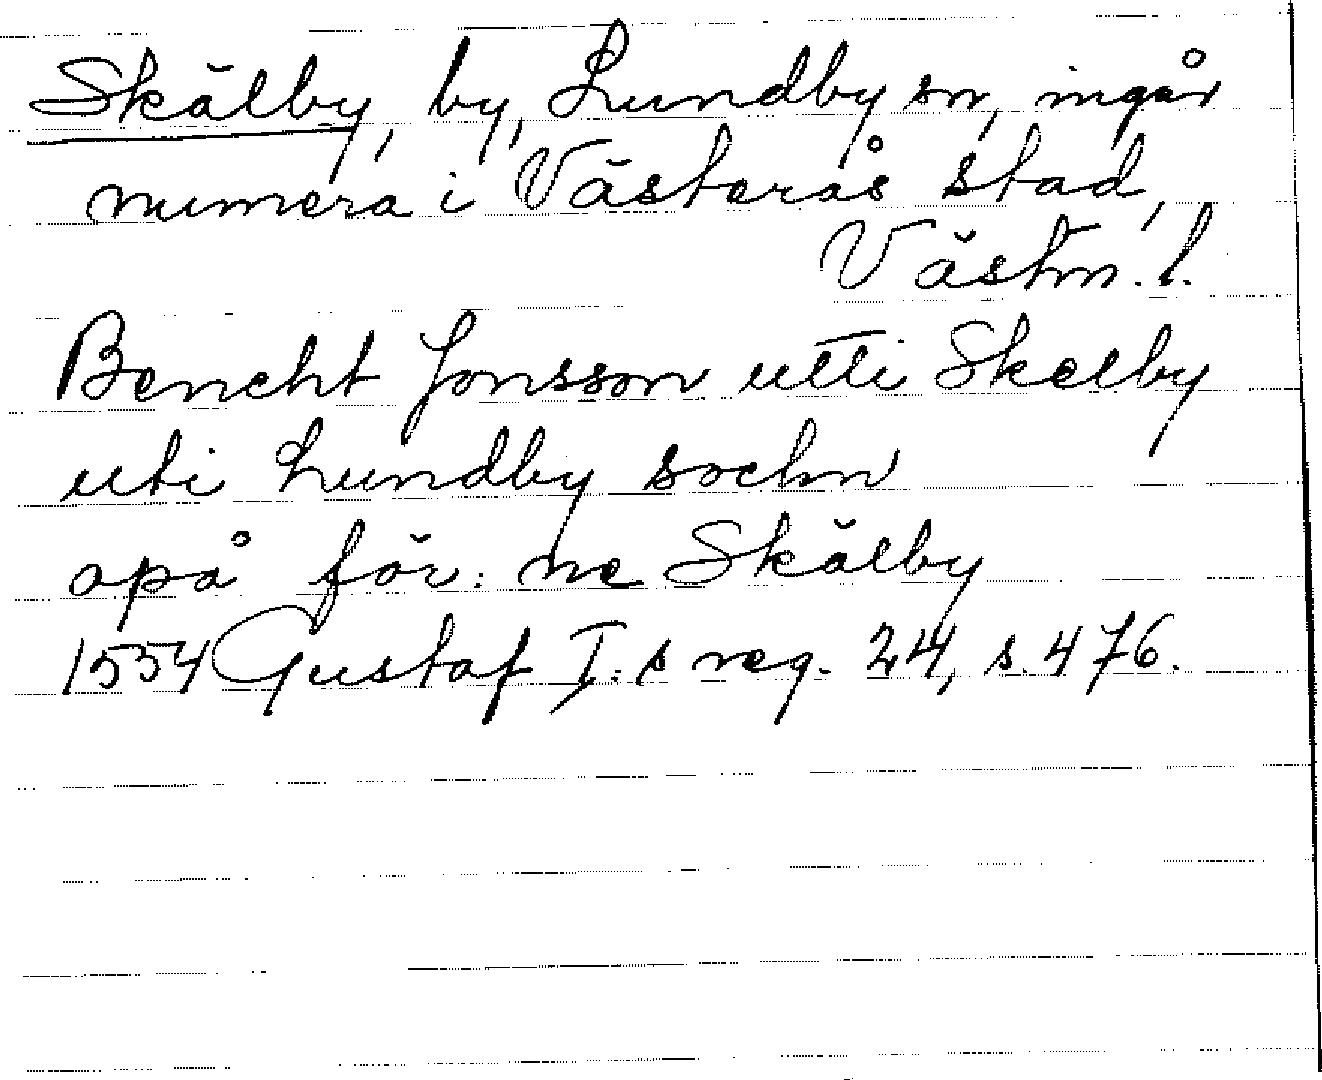 Skälby, by, Lundby sn, ingår
numera i Västerås stad,
Västm. l.
Bencht Jonsson utti Skelby
uti Lundby sochn
opå för: ne Skälby
1554 Gustaf I:s reg. 24, s. 476.